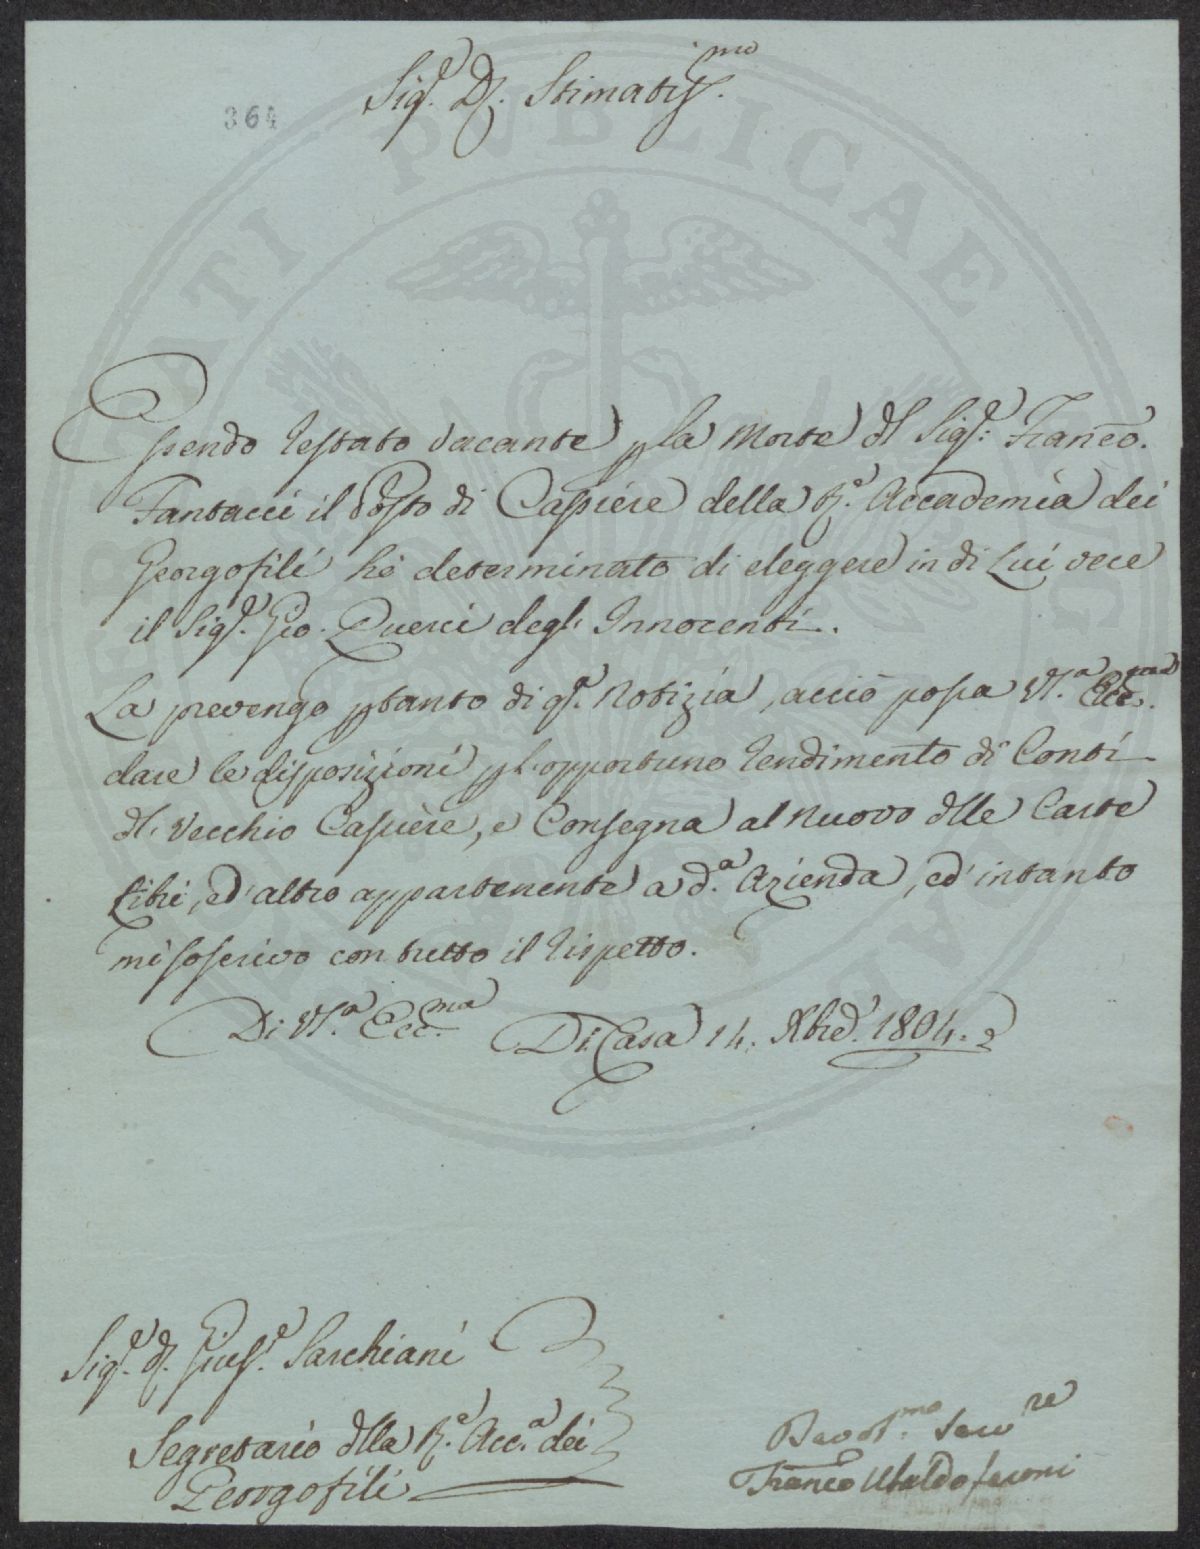 364
Sig.e D. Stimatiss.mo
Essendo restato vacante p la Morte dl Sig.e Franco.
Fantacci il Posto di Cassiere della R.e Accademia dei
Georgofili hò determinato di eleggere in di Lui vece
il Sig.e Gio. Querci degl' Innocenti.
La prevengo ptanto di q.a Notizia, acciò possa V.a Ecc.ma
dare le disposizioni p l'opportuno rendimento di Conti
dl Vecchio Cassiere, e Consegna al nuovo dlle Carte
Libri, ed altro appartenente a d.a Azienda, ed intanto
mi soscrivo con tutto il rispetto.
Di V.a Ecc.ma Di Casa 14. Xbre 1804.
Sig.e D. Gius.e Sarchiani
Segretario dlla R.e Acc.a dei
Georgofili
Devot.mo Serv.re
Franco Ubaldo Feroni
PVBLICAE